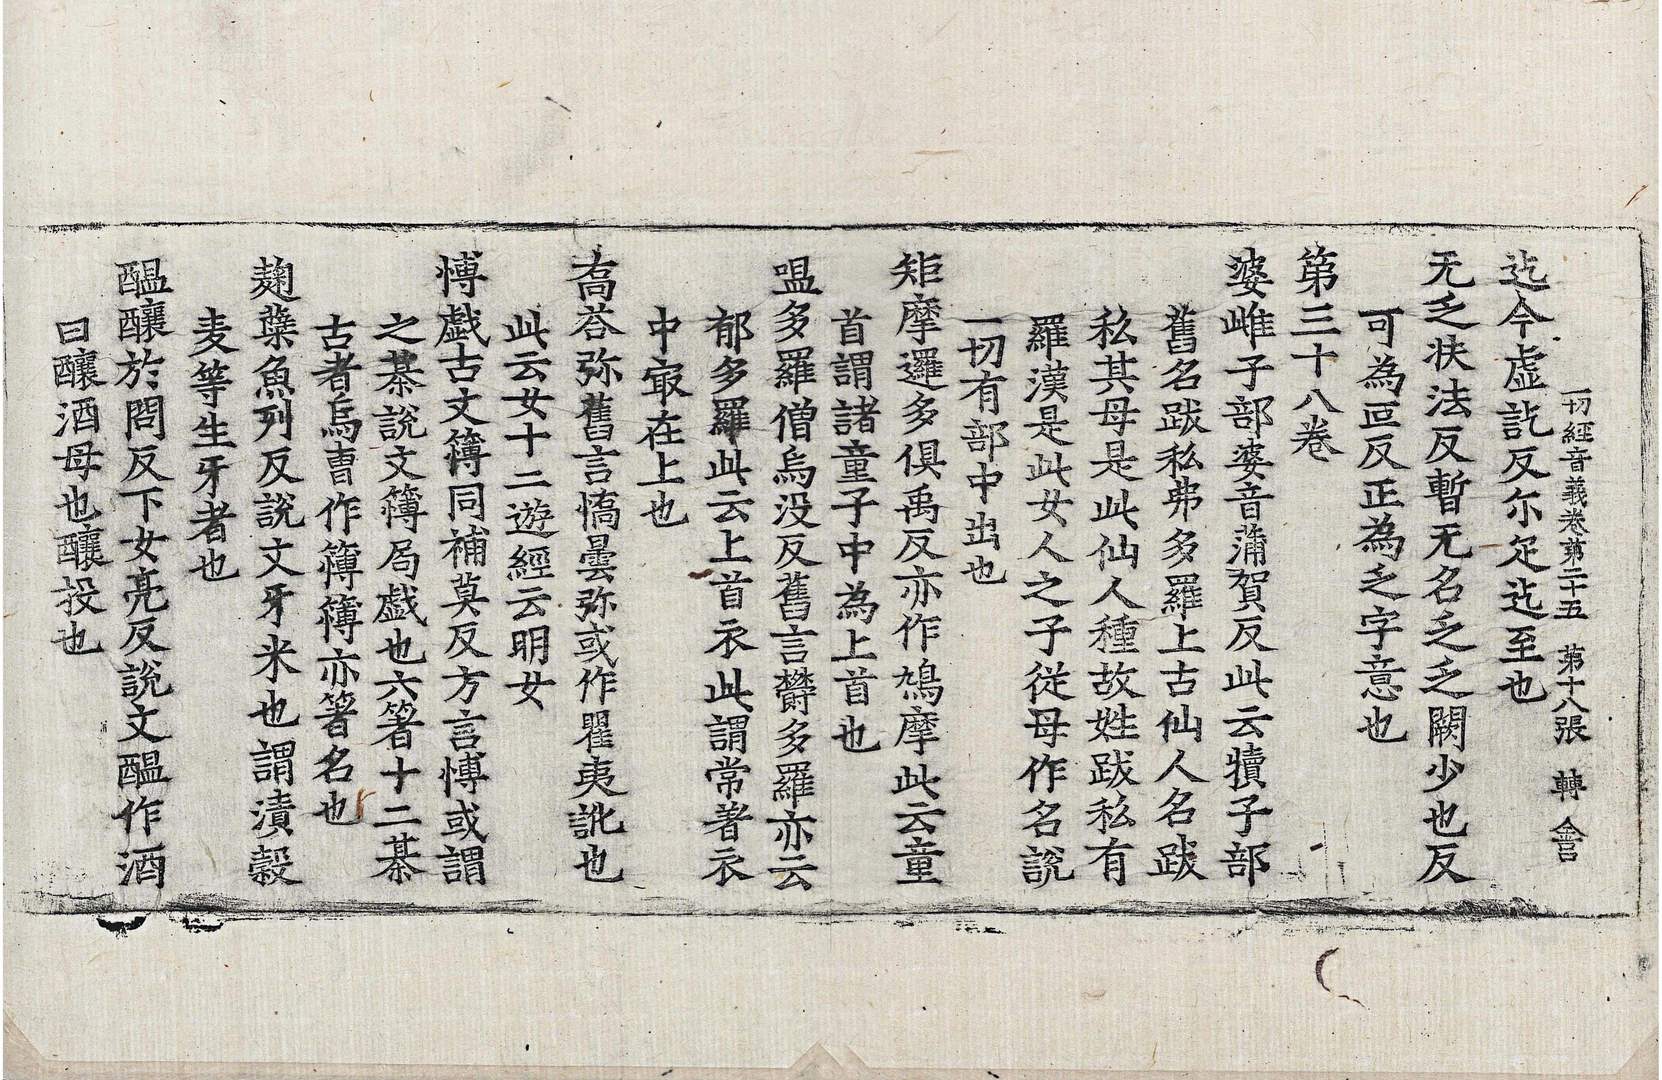 一切經音義卷第二十五　第十八張　轉　會
迄今虛訖反尒疋迄至也
无乏扶法反暫无名乏乏闕少也反
可為叵反正為乏字意也
第三十八卷
婆雌子部婆音蒲賀反此云犢子部
舊名跋私弗多羅上古仙人名跋
私其母是此仙人種故姓跋私有
羅漢是此女人之子從母作名說
一切有部中出也
矩摩邏多俱禹反亦作鳩摩此云童
首謂諸童子中為上首也
嗢多羅僧烏没反舊言欝多羅亦云
郁多羅此云上首衣此謂常著衣
中㝡在上也
喬荅弥舊言憍曇弥或作瞿夷訛也
此云女十二遊經云明女
愽戲古文簙同補莫反方言愽或謂
之棊說文簙局戲也六箸十二棊
古者烏曺作簙簙亦箸名也
麹櫱魚列反說文牙米也謂漬糓
麦等生牙者也
醖釀於問反下女亮反說文醖作酒
曰釀酒母也釀投也